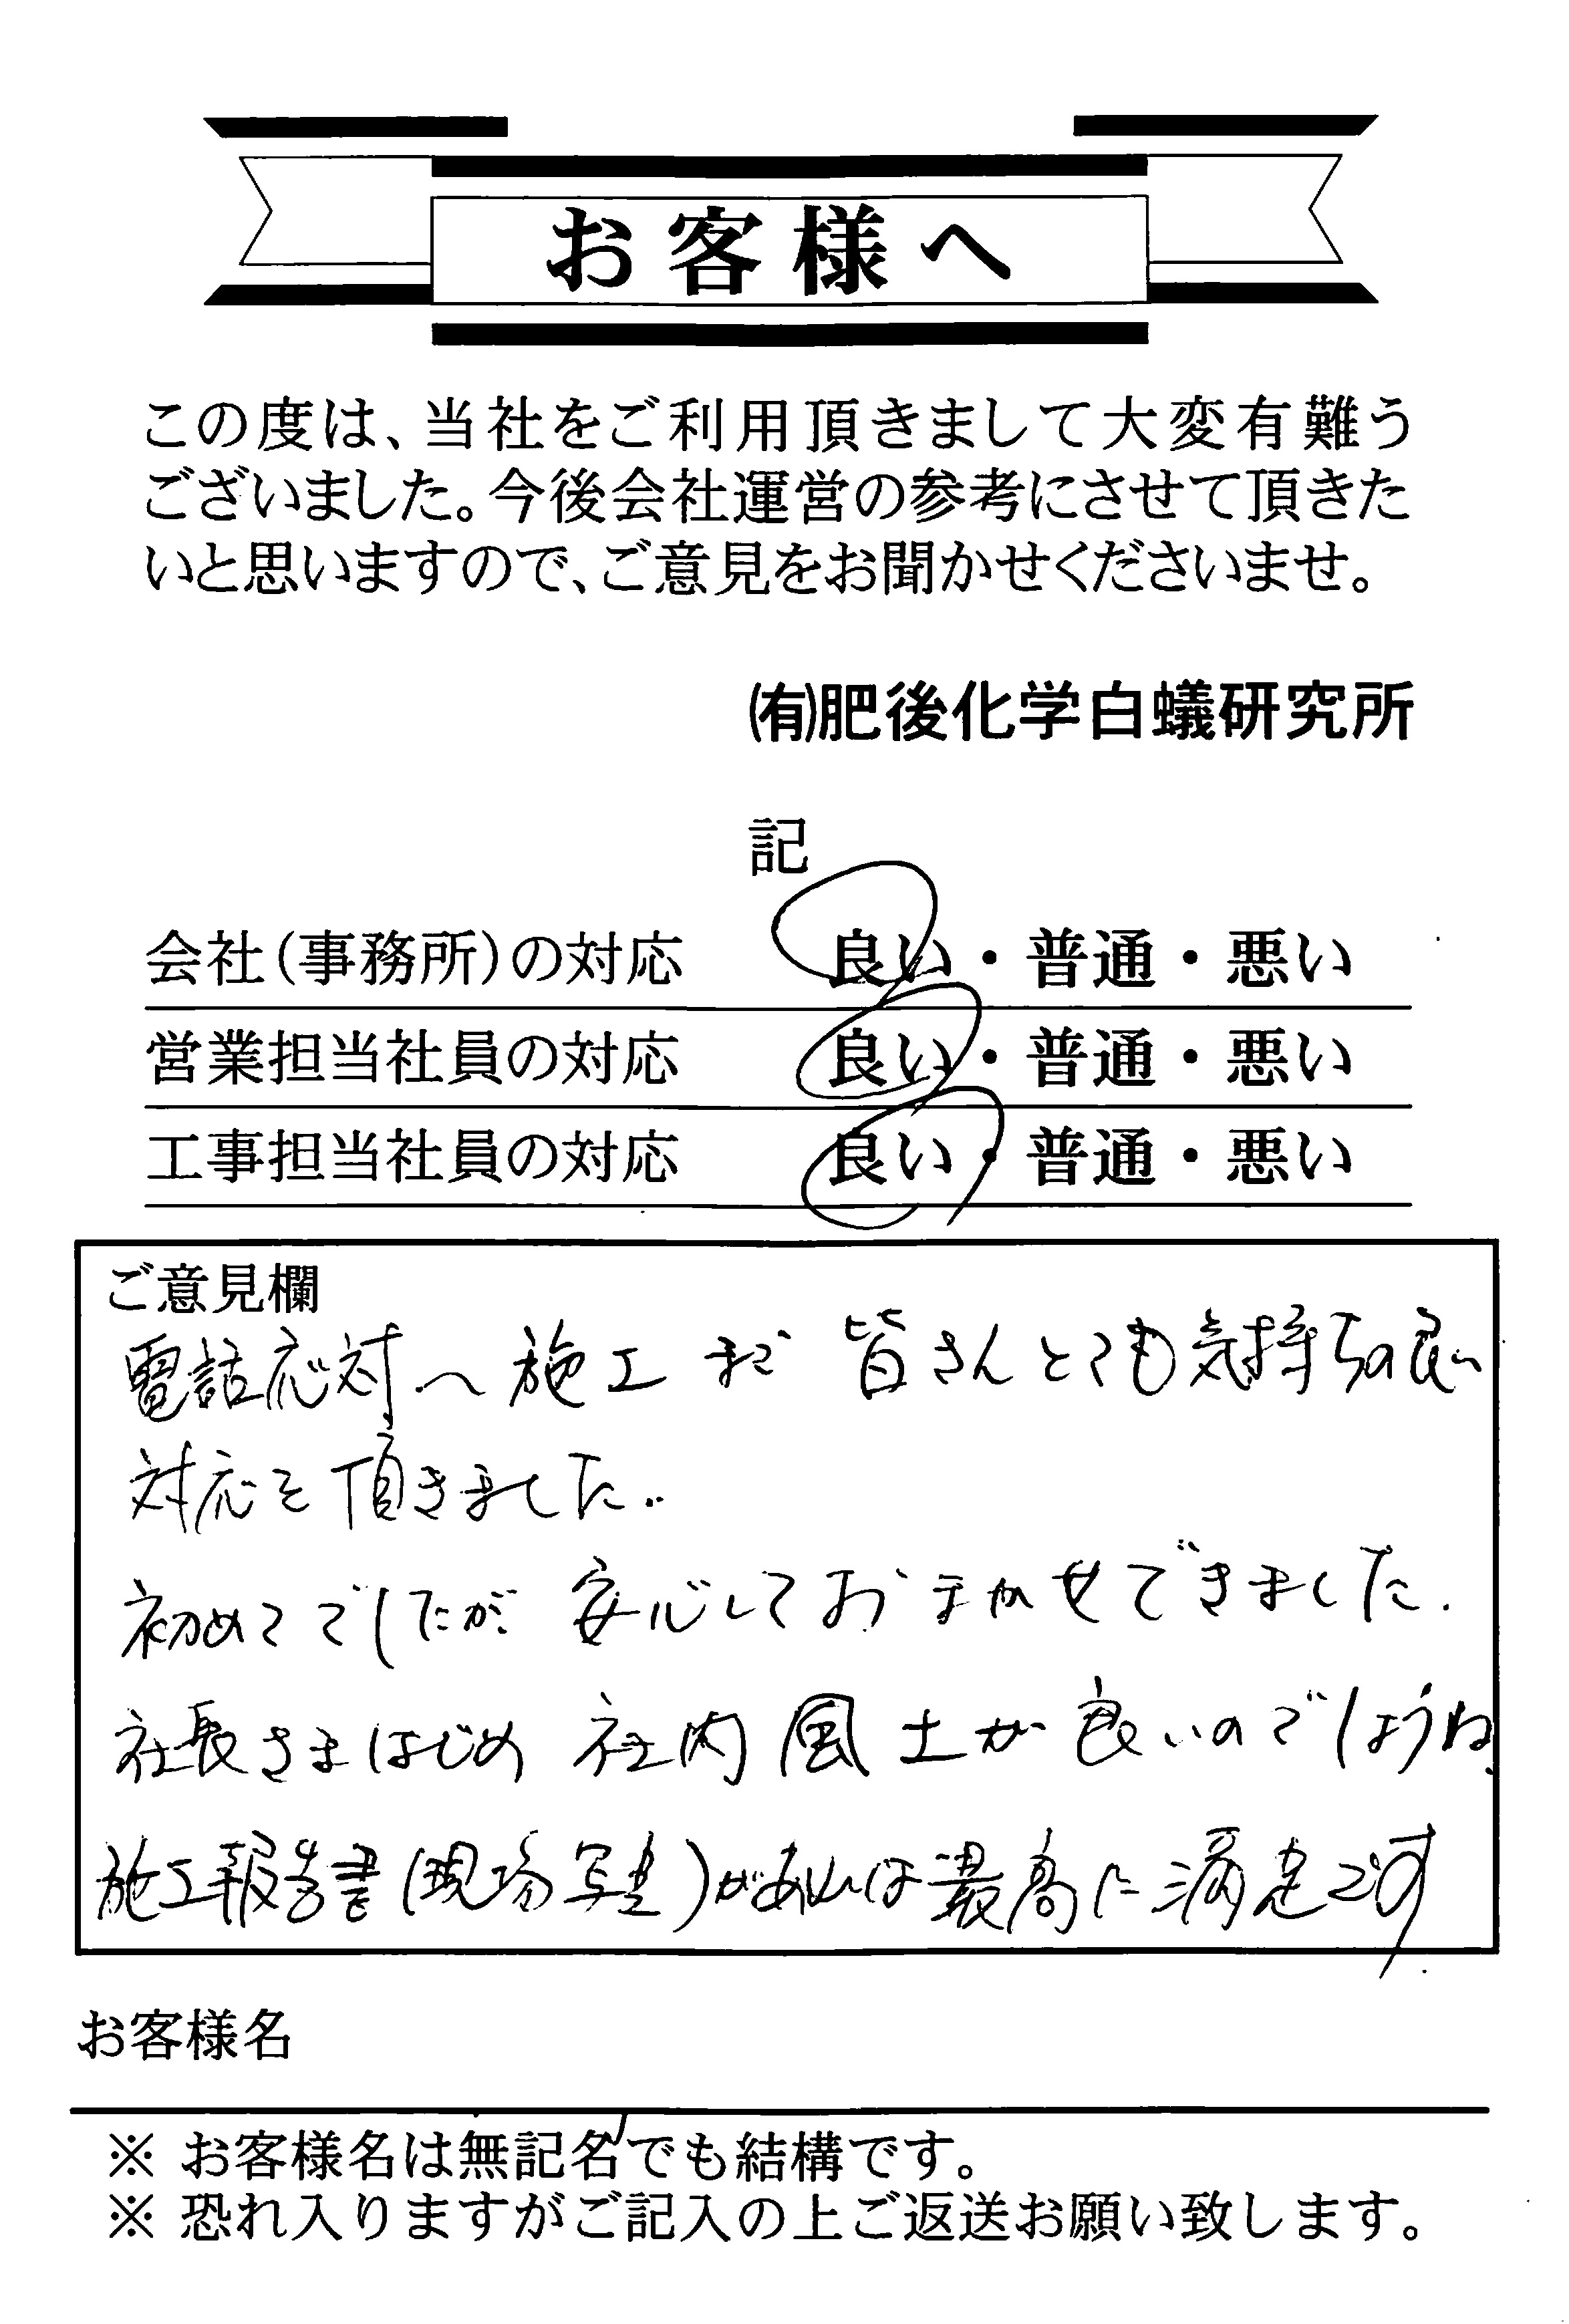 お客様へ
この度は、当社をご利用頂きまして大変有難う
ございました。今後会社運営の参考にさせて頂きた
いと思いますので、ご意見をお聞かせくださいませ。
㈲肥後化学白蟻研究所
記
会社(事務所)の対応 良い・普通・悪い
営業担当社員の対応 良い・普通・悪い
工事担当社員の対応 良い・普通・悪い
ご意見欄
電話応対〜施工まで 皆さんとても気持ちの良い
対応を頂きました..
初めてでしたが 安心しておまかせできました.
社長さまはじめ 社内風土が良いのでしょうね.
施工報告書(現場写真)があれば最高に満足です
お客様名
※ お客様名は無記名でも結構です。
※ 恐れ入りますがご記入の上ご返送お願い致します。